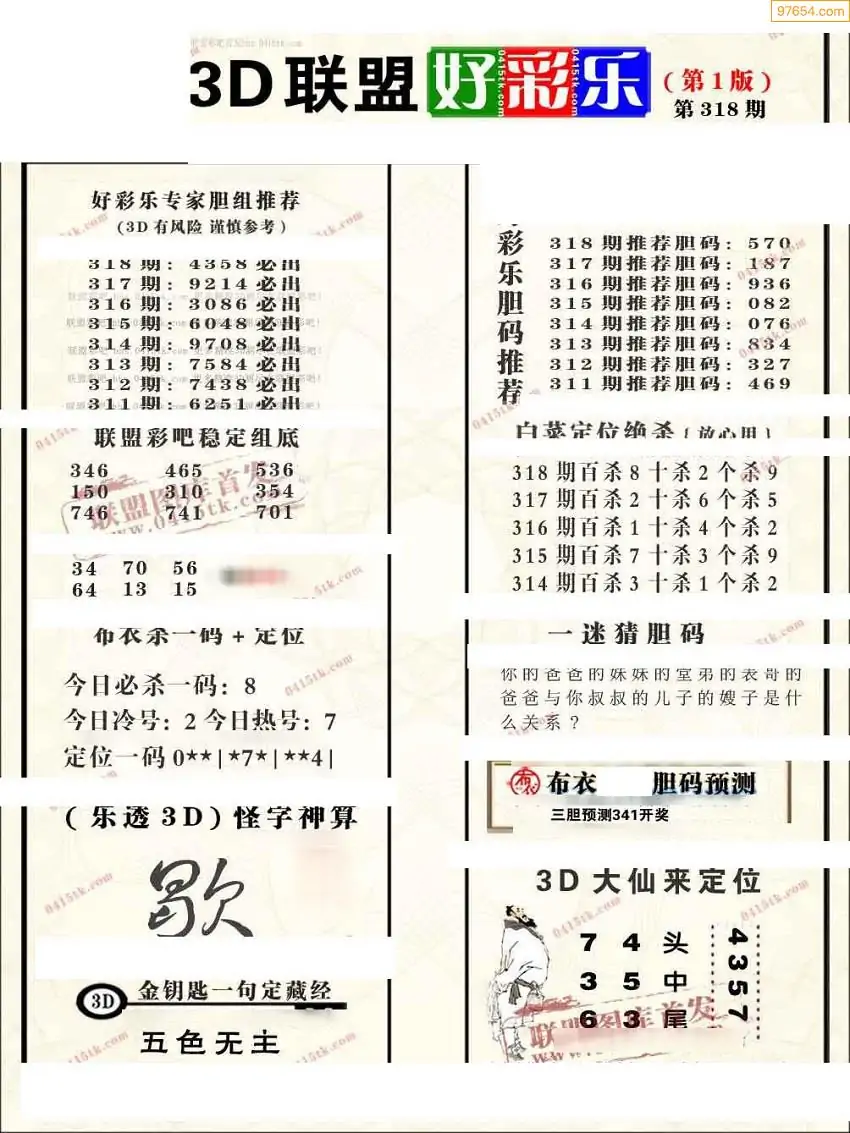 97654.com
3D联盟好彩乐(第1版)
第318期
好彩乐专家胆组推荐
(3D有风险 谨慎参考)
318期: 4358必出
317期: 9214必出
316期: 3086必出
315期: 6048必出
314期: 9708必出
313期: 7584必出
312期: 7438必出
311期: 6251必出
联盟彩吧稳定组底
346 465 536
150 310 354
746 741 701
34 70 56
64 13 15
布衣杀一码+定位
今日必杀一码: 8
今日冷号: 2 今日热号: 7
定位一码 0**|*7*|**4|
(乐透3D)怪字神算
歇
3D 金钥匙一句定藏经
五色无主
彩乐胆码推荐
318期推荐胆码: 570
317期推荐胆码: 187
316期推荐胆码: 936
315期推荐胆码: 082
314期推荐胆码: 076
313期推荐胆码: 834
312期推荐胆码: 327
311期推荐胆码: 469
白菜定位绝杀(放心用)
318期百杀8十杀2个杀9
317期百杀2十杀6个杀5
316期百杀1十杀4个杀2
315期百杀7十杀3个杀9
314期百杀3十杀1个杀2
一迷猜胆码
你的爸爸的妹妹的堂弟的表哥的
爸爸与你叔叔的儿子的嫂子是什
么关系?
布衣 胆码预测
三胆预测341开奖
3D大仙来定位
7 4 头
3 5 中
6 3 尾
4357
联盟图库首发
www.0415tk.com
0415tk.com